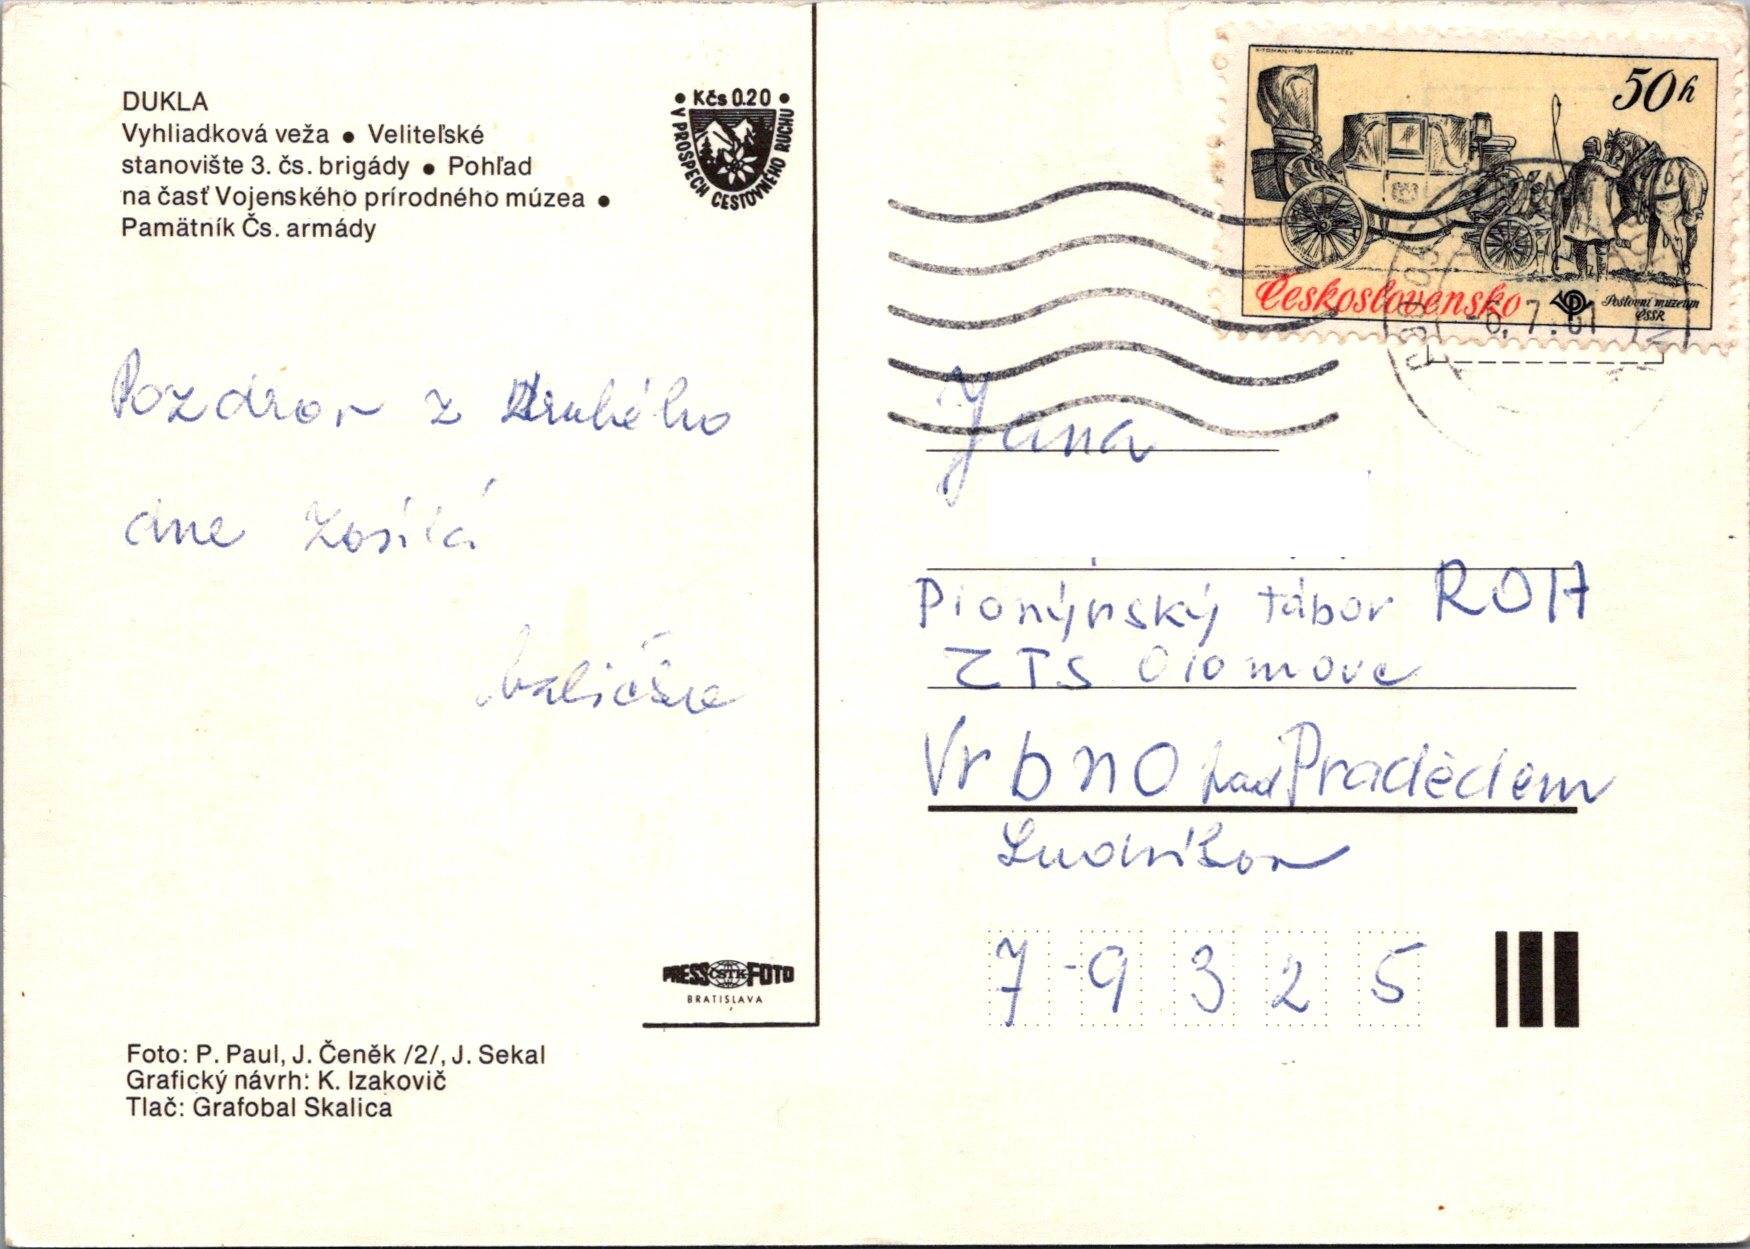 DUKLA
Vyhliadková veža ● Veliteľské
stanovište 3. čs. brigády ● Pohľad
na časť Vojenského prírodného múzea ●
Pamätník Čs. armády
• Kčs 0.20 •
V PROSPECH CESTOVNÉHO RUCHU
50h
Československo
Poštovní muzeum
ČSSR
6. 7. 81
Pozdrav z Druhého
dne zasílá
Jana
Pionýrský tábor ROH
ZTS Olomouc
Vrbno pod Pradědem
Ludvíkov
7 9 3 2 5
PRESS ČSTK FOTO
BRATISLAVA
Foto: P. Paul, J. Čeněk /2/, J. Sekal
Grafický návrh: K. Izakovič
Tlač: Grafobal Skalica